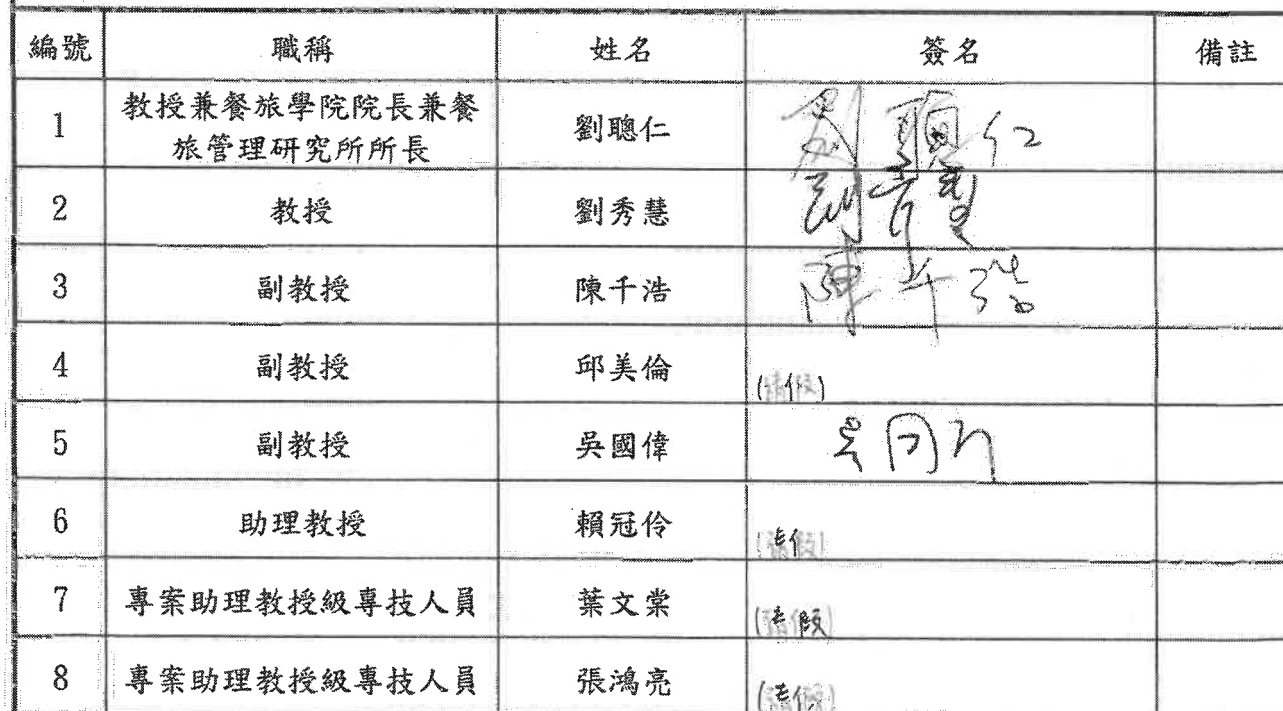 編號 職稱 姓名 簽名 備註
1 教授兼餐旅學院院長兼餐旅管理研究所所長 劉聰仁 劉聰仁
2 教授 劉秀慧 劉秀慧
3 副教授 陳千浩 陳千浩
4 副教授 邱美倫 (請假)
5 副教授 吳國偉 吳国偉
6 助理教授 賴冠伶 (請假)
7 專案助理教授級專技人員 葉文棠 (請假)
8 專案助理教授級專技人員 張鴻亮 (請假)